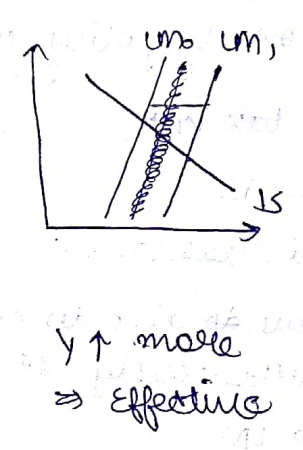 LM₀ LM₁
IS
Y ↑ more
⇒ Effective